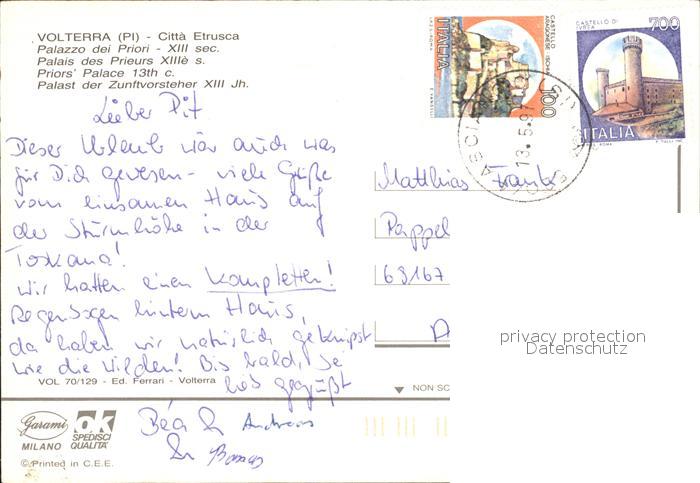 VOLTERRA (PI) - Città Etrusca
Palazzo dei Priori - XIII sec.
Palais des Prieurs XIIIè s.
Priors' Palace 13th c.
Palast der Zunftvorsteher XIII Jh.
CASTELLO ARAGONESE ISCHIA
ITALIA
CASTELLO DI IVREA
700
ITALIA
13.5.97
Lieber Pit
Dieser Urlaub wär auch was
für Dich gewesen - viele Grüße
vom einsamen Haus auf
der Sturmhöhe in der
Toskana!
Wir hatten einen kompletten!
Regenbogen hinterm Haus,
da haben wir natürlich geknipst
wie die Wilden! Bis bald, sei
lieb gegrüßt
Béa & Andreas
Matthias
Pappel
68167
VOL 70/129 - Ed. Ferrari - Volterra
NON SC
Garami
MILANO
ok
SPEDISCI
QUALITÀ
© Printed in C.E.E.
privacy protection
Datenschutz